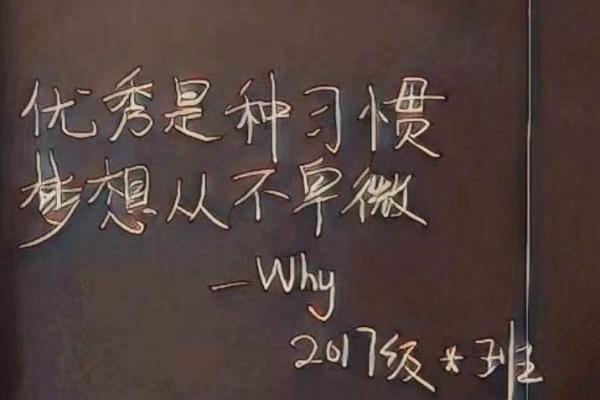 优秀是种习惯
梦想从不卑微
—Why
2017级*班